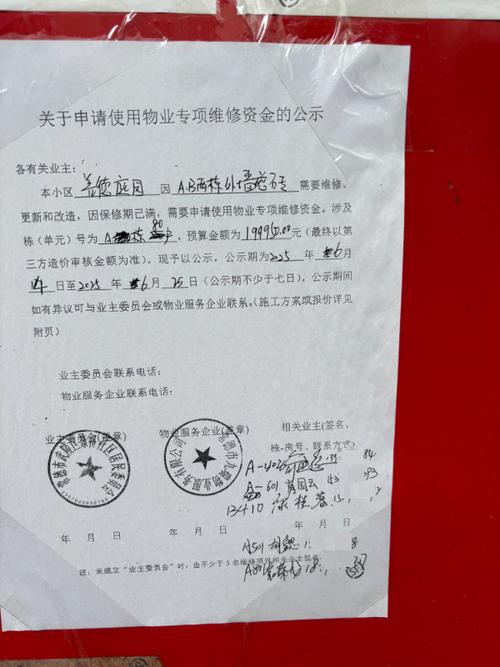 关于申请使用物业专项维修资金的公示
各有关业主:
本小区 庭园 因 A.B两栋外墙瓷砖 需要维修、
更新和改造,因保修期已满,需要申请使用物业专项维修资金。涉及
栋(单元)号为 A 栋 80 户,预算金额为 199950.00 元(最终以第
三方造价审核金额为准)。现予以公示,公示期为2025 年 6 月
日至2025 年 6 月 25 日(公示期不少于七日)。公示期间
如有异议可与业主委员会或物业服务企业联系。(施工方案或报价详见
附页)
业主委员会联系电话:
物业服务企业联系电话:
业主委员会(盖章) 物业服务企业(盖章) 相关业主(签名、
栋-房号、联系方式)
常德市武陵区 社区居民委员会
常德市九 物业服务有限公司
A-402
A-601 肖国云
B410
年 月 日 年 月 日 年 月 日
A501
注:未成立“业主委员会”时,由不少于3名维修项目相关业主签名